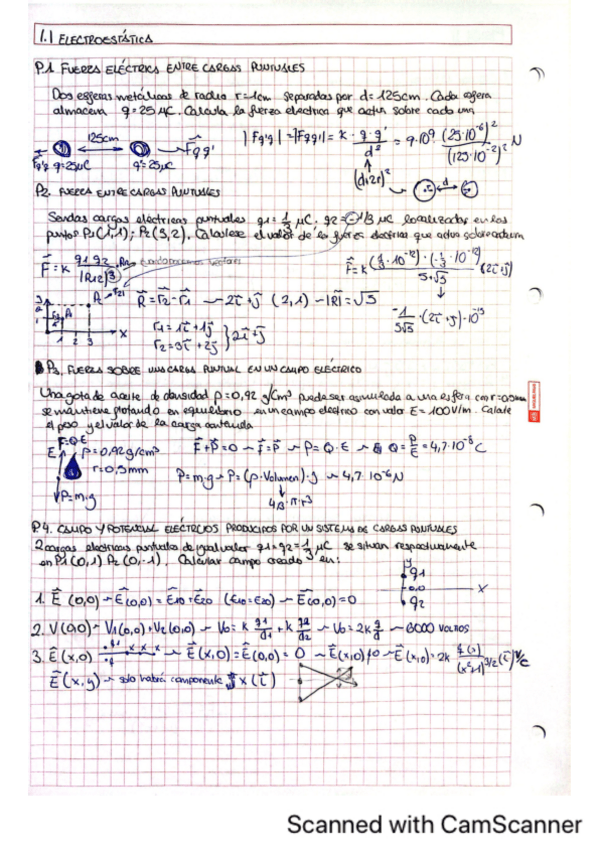 1.1 ELECTROESTÁTICA
P.1 FUERZA ELÉCTRICA ENTRE CARGAS PUNTUALES
Dos esferas metálicas de radio r=1cm separadas por d=125cm. Cada esfera
almacena q=25 µC. Calcula la fuerza electrica que actua sobre cada una
125cm
Fq'q q=25µC q'=25µC Fqq'
|Fq'q|=|Fqq'|= k · q·q' / d² = 9·10⁹ (25·10⁻⁶)² / (125·10⁻²)² N
(d+2r)²
d
P2. FUERZA ENTRE CARGAS PUNTUALES
Sendas cargas eléctricas puntuales q1=1/3 µC, q2=-1/3 µC localizadas en los
puntos P1(1,1); P2(3,2). Calculese el valor de la fuerza electrica que actua sobre cada una
F = k q1 q2 / |R12|³ · R12
F = k (1/3·10⁻¹²)·(-1/3·10⁻¹²) / 5+√5 (2i+j)
R = r2-r1 ~ 2i+j (2,1) - |R| = √5
-1 / 5√5 · (2i+j)·10⁻¹³
r1 = 1i+1j
r2 = 3i+2j } 2i+j
1 2 3 x
P3. FUERZA SOBRE UNA CARGA PUNTUAL EN UN CAMPO ELÉCTRICO
Una gota de aceite de densidad ρ=0,92 g/cm³ puede ser asimilada a una esfera con r=0,5mm
se mantiene flotando en equilibrio en un campo electrico con valor E=100V/m. Calcule
el peso y el valor de la carga contenida
F=Q·E
E ρ=0,92g/cm³
r=0,5mm
P=m·g
F+P=0 ~ F=P ~ P=Q·E ~ Q = P/E = 4,7·10⁻⁸ C
P=m·g ~ P=(ρ·Volumen)·g ~ 4,7·10⁻⁶ N
4/3·π·r³
P.4. CAMPO Y POTENCIAL ELÉCTRICOS PRODUCIDOS POR UN SISTEMA DE CARGAS PUNTUALES
2 cargas electricas puntuales de igual valor q1=q2=1/3 µC se situan respectivamente
en P1(0,1) P2(0,-1). Calcular campo creado en:
y
q1
0,0 x
q2
1. E(0,0) ~ E(0,0) = E10+E20 (E10=E20) ~ E(0,0)=0
2. V(0,0) ~ V1(0,0)+V2(0,0) ~ V0 = k q1/d1 + k q2/d2 ~ V0=2k q/d ~ 6000 VOLTIOS
3. E(x,0) ~ E(x,0)=E(0,0)=0 ~ E(x,0)≠0 ~ E(x,0)=2k q(x) / (x²+1)^3/2 (i) V/C
E(x,y) ~ solo habrá componente x (i)
Scanned with CamScanner